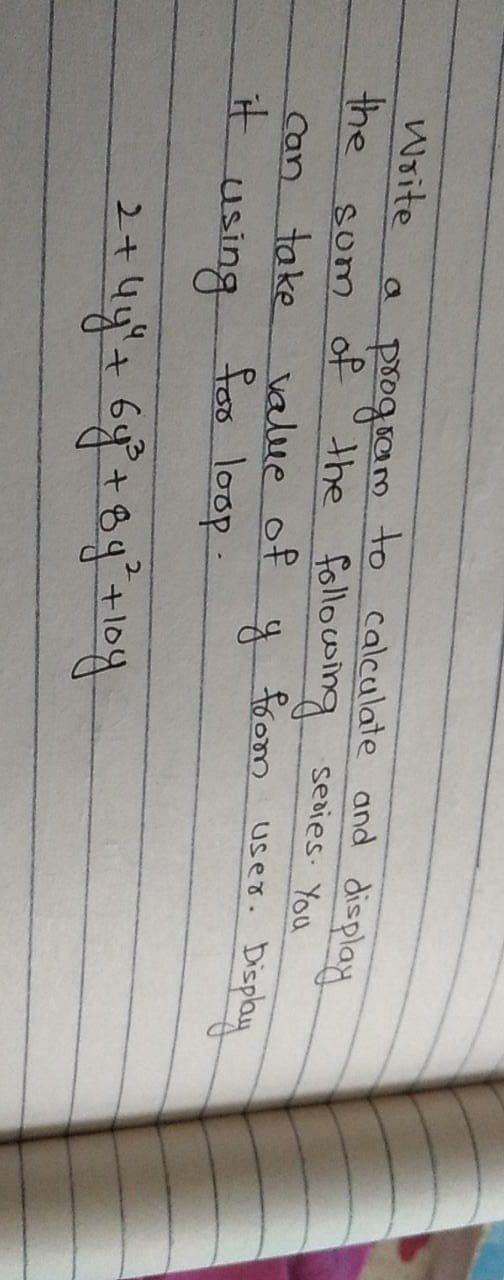 Write a program to calculate and display
the sum of the following series. You
can take value of y from user. Display
it using for loop.
2 + 4y⁴ + 6y³ + 8y² + 10y